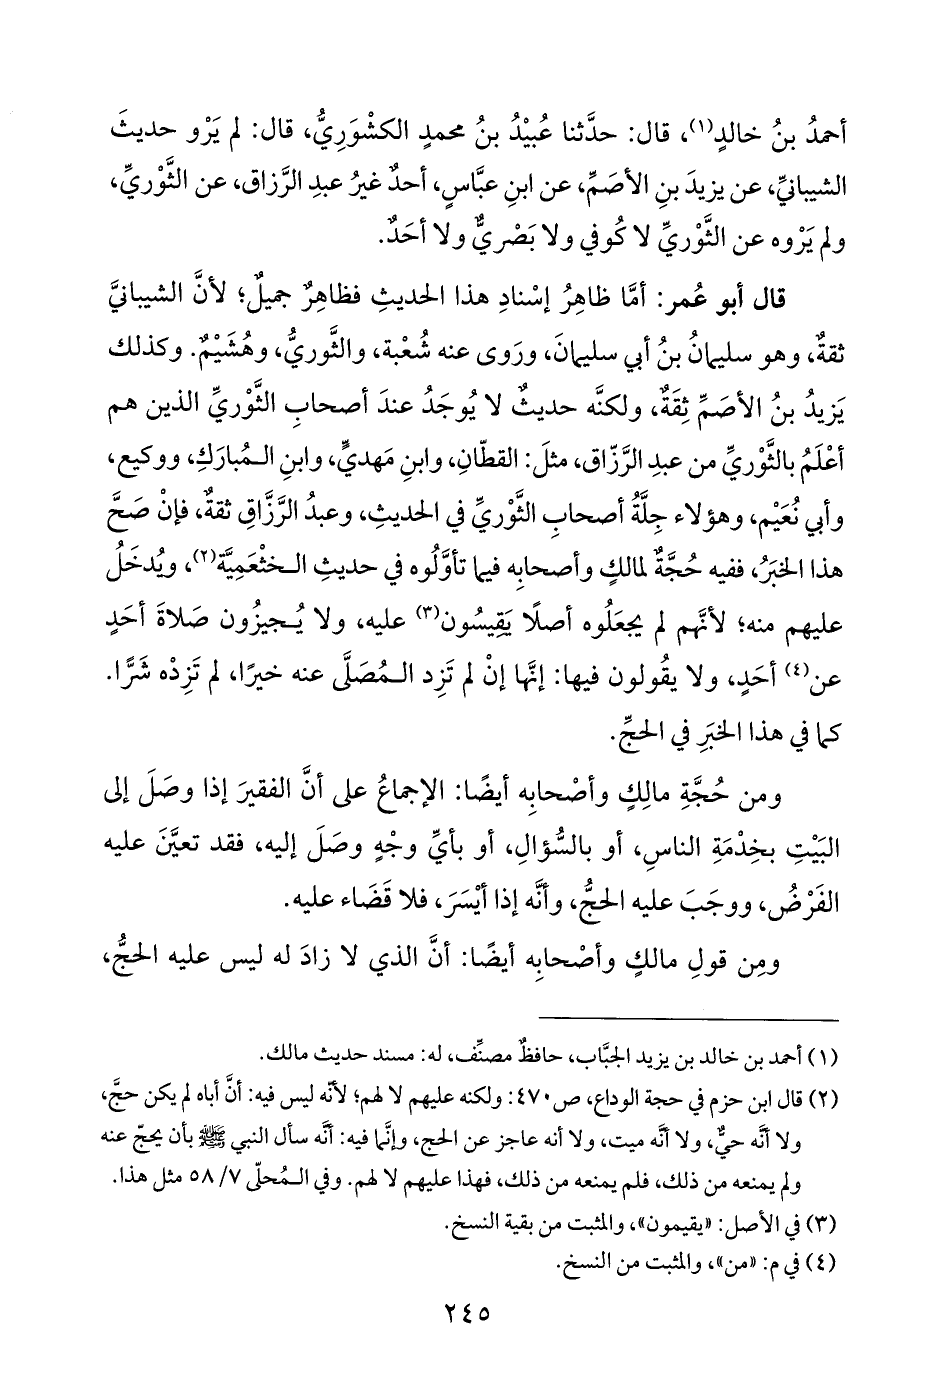 أحمدُ بنُ خالدٍ(١)، قال: حدَّثنا عُبيْدُ بنُ محمدٍ الكشْوَرِيُّ، قال: لم يَرْوِ حديثَ
الشيبانيِّ، عن يزيدَ بنِ الأصَمِّ، عن ابنِ عبَّاسٍ، أحدٌ غيرُ عبدِ الرَّزاقِ، عن الثَّوْريِّ،
ولم يَرْوِه عن الثَّوْريِّ لا كُوفي ولا بَصْريٌّ ولا أحَدٌ.
قال أبو عُمر: أمَّا ظاهِرُ إسْنادِ هذا الحديثِ فظاهِرٌ جميلٌ؛ لأنَّ الشيبانيَّ
ثقةٌ، وهو سليمانُ بنُ أبي سليمانَ، ورَوى عنه شُعْبة، والثَّوريُّ، وهُشَيْمٌ. وكذلك
يَزيدُ بنُ الأصَمِّ ثِقَةٌ، ولكنَّه حديثٌ لا يُوجَدُ عندَ أصحابِ الثَّوريِّ الذين هم
أعْلَمُ بالثَّوْريِّ من عبدِ الرَّزّاق، مثلَ: القطّانِ، وابنِ مَهديٍّ، وابنِ الـمُبارَكِ، ووكيع،
وأبي نُعَيْم، وهؤلاء جِلَّةُ أصحابِ الثَّوْريِّ في الحديثِ، وعبدُ الرَّزَّاقِ ثقةٌ، فإنْ صَحَّ
هذا الخبَرُ، ففيه حُجَّةٌ لمالكٍ وأصحابِه فيما تأوَّلُوه في حديثِ الـخثْعَميَّة(٢)، ويُدخَلُ
عليهم منه؛ لأنَّهم لم يجعَلُوه أصلًا يَقِيسُون(٣) عليه، ولا يُـجيزُون صَلاةَ أحَدٍ
عن(٤) أحَدٍ، ولا يقُولون فيها: إنَّها إنْ لم تَزِد الـمُصَلَّى عنه خيرًا، لم تَزِدْه شَرًّا.
كما في هذا الخبَرِ في الحجِّ.
ومن حُجَّةِ مالِكٍ وأصْحابِه أيضًا: الإجماعُ على أنَّ الفقيرَ إذا وصَلَ إلى
البَيْتِ بخِدْمَةِ الناسِ، أو بالسُّؤالِ، أو بأيِّ وجْهٍ وصَلَ إليه، فقد تعيَّنَ عليه
الفَرْضُ، ووجَبَ عليه الحجُّ، وأنَّه إذا أيْسَرَ، فلا قَضَاء عليه.
ومِن قولِ مالكٍ وأصْحابِه أيضًا: أنَّ الذي لا زادَ له ليس عليه الحجُّ،
(١) أحمد بن خالد بن يزيد الجبَّاب، حافظٌ مصنِّف، له: مسند حديث مالك.
(٢) قال ابن حزم في حجة الوداع، ص٤٧٠: ولكنه عليهم لا لهم؛ لأنّه ليس فيه: أنَّ أباه لم يكن حجَّ،
ولا أنَّه حيٌّ، ولا أنَّه ميت، ولا أنه عاجز عن الحج، وإنَّما فيه: أنَّه سأل النبي ﷺ بأن يحجّ عنه
ولم يمنعه من ذلك، فلم يمنعه من ذلك، فهذا عليهم لا لهم. وفي الـمُحلّى ٧/ ٥٨ مثل هذا.
(٣) في الأصل: «يقيمون»، والمثبت من بقية النسخ.
(٤) في م: «من»، والمثبت من النسخ.
٢٤٥